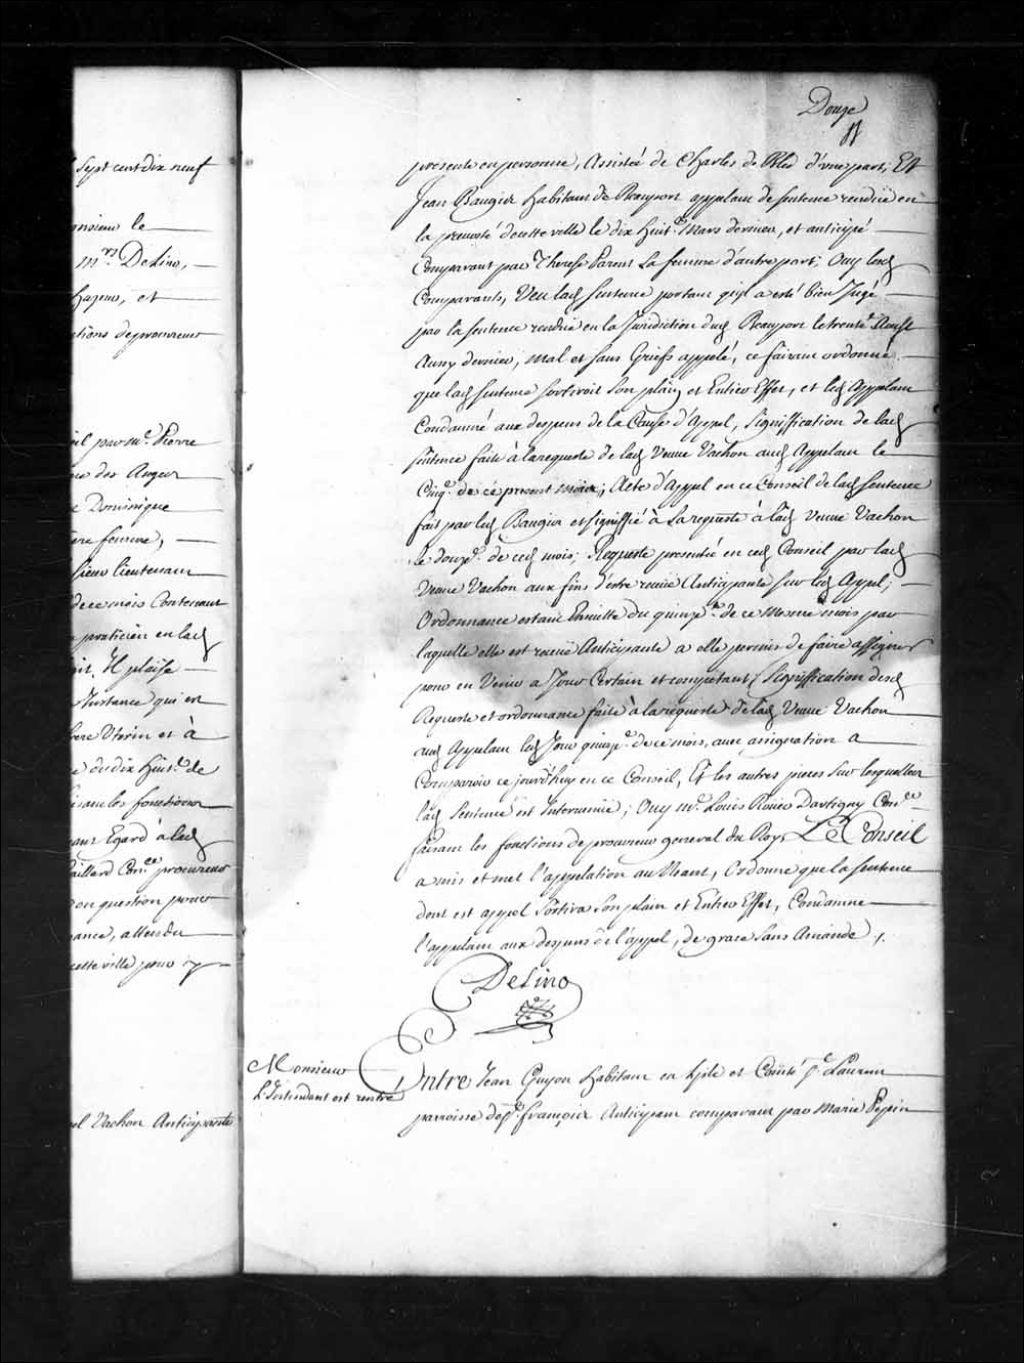 Sept cent dix neuf
monsieur le
mrs. Delino,
hazeur, et
ctions de procureur
eil par me. Pierre
re des Anges
e Dominique
ere femme,
sieur lieutenant
de ce mois Contenant
praticien en lad
ait. Il plaise
Instance qui est
frere Uterin et à
e du dix huit.e de
isant les fonctions
ant Egard à lad
aillard Con.er procureur
en question pour
ance, attendu
cette ville pour y
el Vachon Anticipante
Douze
presente en personne, Assistée de Charles de Bled d'une part, Et
Jean Baugis habitant de Beauport appelant de sentence rendüe en
la prevosté de cette ville le dix huit.e Mars dernier, et anticipé
Comparant par Therese Parent Sa femme d'autre part; Ouy lesd
Comparants, Veu lad Sentence portant qu'il a esté bien Jugé
par la Sentence rendüe en la Juridiction dud Beauport le trente Aoust
Aussy dernier, mal et sans Griefs appelé, ce faisant ordonné
que lad Sentence Sortiroit Son plain et Entier Effet, et led Appelant
Condamné aux despens de la Cause d'Appel, Signiffication de lad
sentence faite à la requeste de lad Veuve Vachon aud Appelant le
Cinq.e de ce present mois; Acte d'Appel en ce Conseil de lad Sentence
fait par led Baugis et signiffié à Sa requeste à lad Veuve Vachon
le douz.e de ced mois; Requeste presentée en ced Conseil par lad
Veuve Vachon aux fins d'estre receüe Anticipante Sur led Appel;
Ordonnance estant Ensuitte du quinz.e de ce Mesme mois par
laquelle elle est receüe Anticipante a elle permis de faire assigner
pour en Venir a Jour Certain et competant, Signiffication desd
Requeste et ordonnance faite à la requeste de lad Veuve Vachon
aud Appelant led Jour quinz.e de ce mois, avec assignation a
Comparoir ce jourd'huy en ce Conseil, Et les autres pieces Sur lesquelles
lad Sentence est Intervenüe; Ouy me. Louis Roüer Dartigny Con.er
faisant les fonctions de procureur general du Roy, Le Conseil
a mis et met l'appelation au Neant, Ordonne que la Sentence
dont est appel Sortira Son plain et Entier Effet, Condamne
l'appelant aux despens de l'appel, de grace Sans Amande
Delino
Monsieur
L'Intendant est rentré
Entre Jean Guyon habitant en Lisle et Comté St. Laurent
parroisse de St. François Anticipant comparant par Marie Pepin